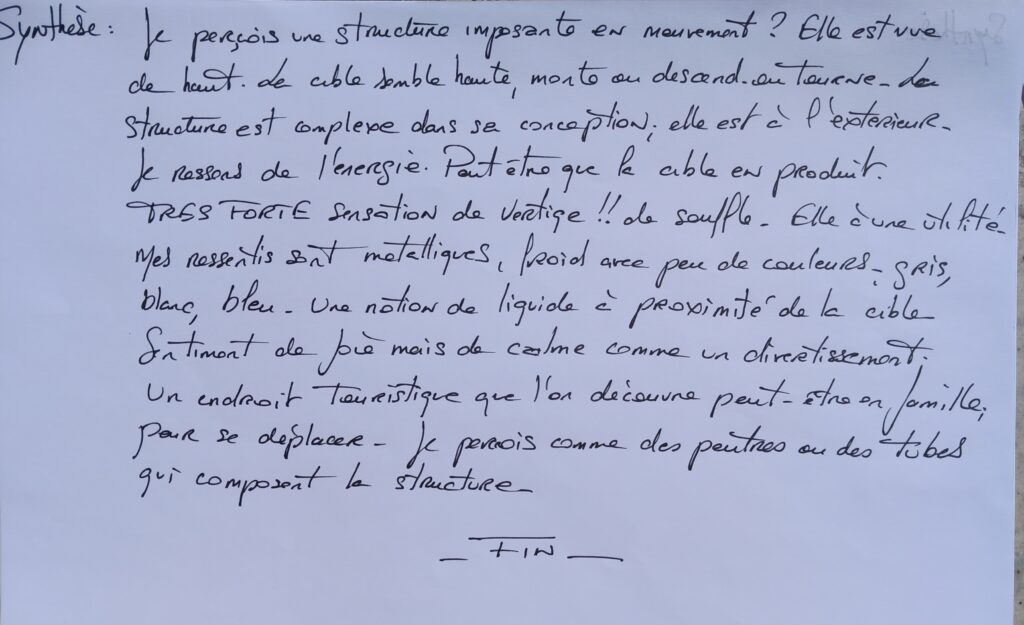 Synthèse: Je perçois une structure imposante en mouvement ? Elle est vue
de haut. La cible semble haute, monte ou descend. ou Tourne - La
structure est complexe dans sa conception; elle est à l'extérieur.
Je ressens de l'énergie. Peut être que la cible en produit.
TRES FORTE sensation de vertige !! de souffle - Elle à une utilité.
Mes ressentis sont métalliques, froid avec peu de couleurs - gris,
blanc, bleu - Une notion de liquide à proximité de la cible
Sentiment de joie mais de calme comme un divertissement;
Un endroit Touristique que l'on découvre peut-être en famille;
pour se déplacer - Je perçois comme des poutres ou des tubes
qui composent la structure
- FIN -